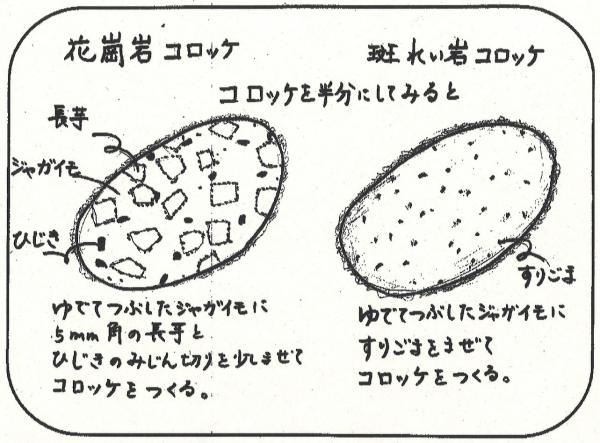 花崗岩コロッケ
斑れい岩コロッケ
コロッケを半分にしてみると
長芋
ジャガイモ
ひじき
すりごま
ゆでてつぶしたジャガイモに
5mm角の長芋と
ひじきのみじん切りを少しまぜて
コロッケをつくる。
ゆでてつぶしたジャガイモに
すりごまをまぜて
コロッケをつくる。